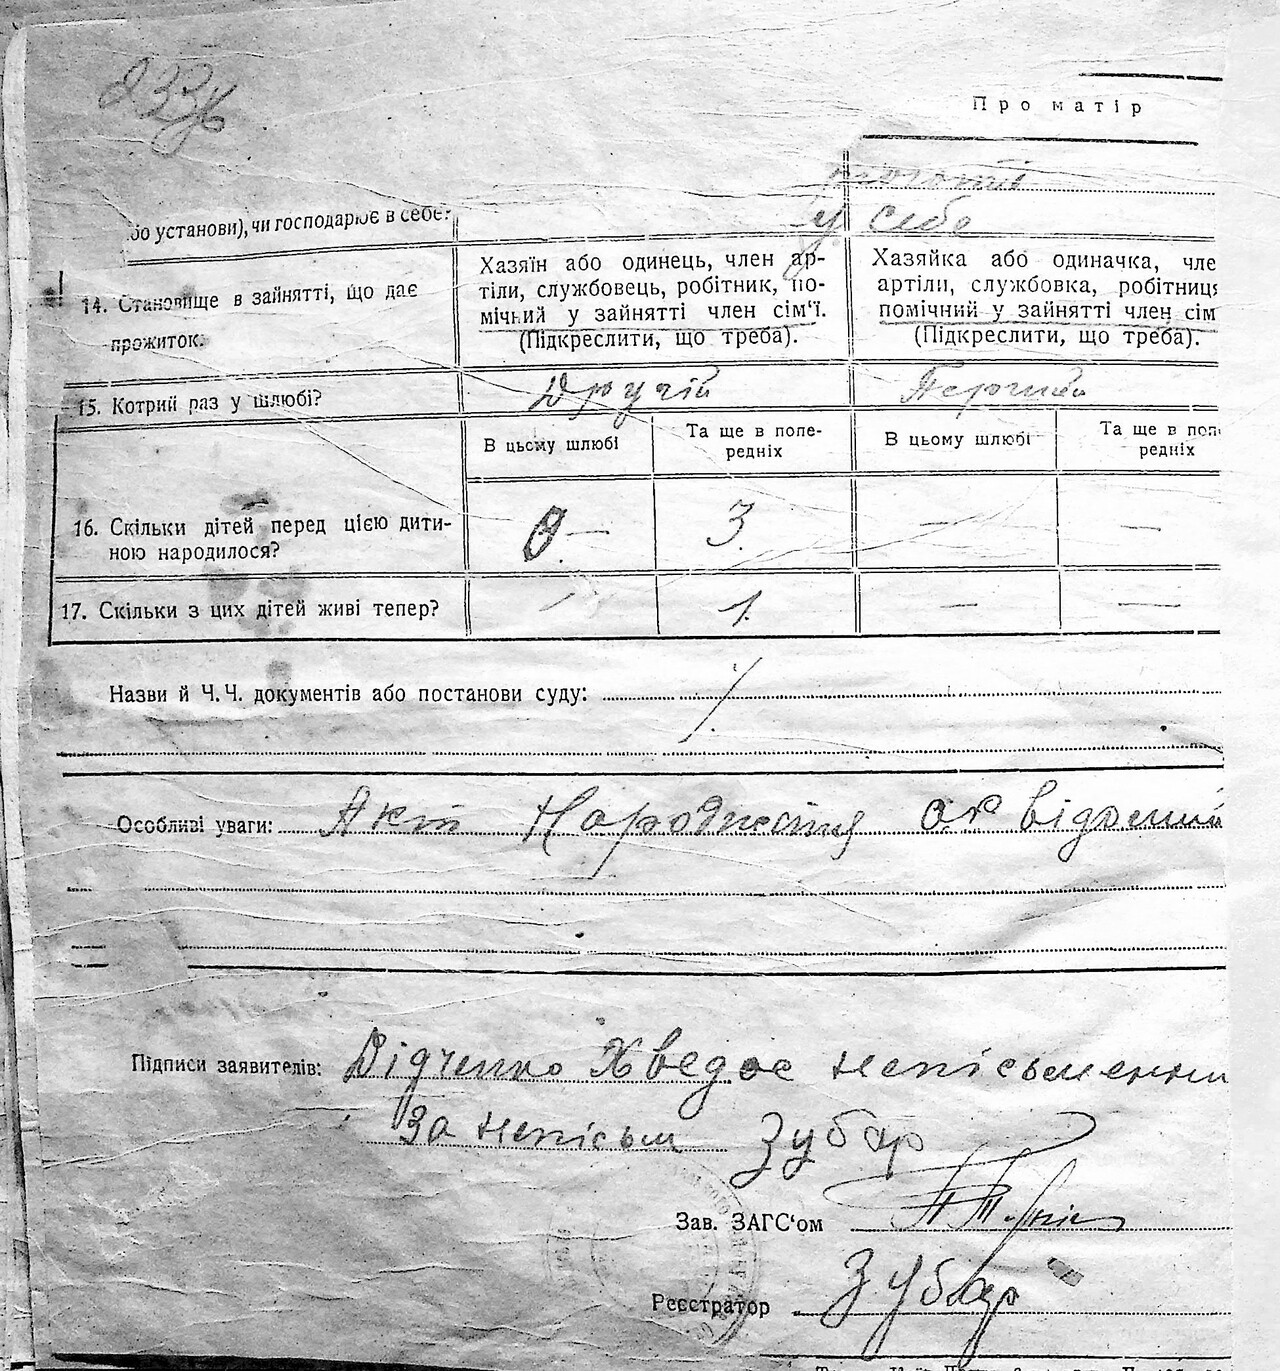 Про матір
у себе
бо установи), чи господарює в себе?
14. Становище в зайнятті, що дає прожиток.
Хазяїн або одинець, член ар-
тіли, службовець, робітник, по-
мічний у зайнятті член сім'ї.
(Підкреслити, що треба).
Хазяйка або одиначка, чле
артіли, службовка, робітниц
помічний у зайнятті член сім
(Підкреслити, що треба).
15. Котрий раз у шлюбі? Другій Перший
В цьому шлюбі
Та ще в попе-
редніх
В цьому шлюбі
Та ще в поп
редніх
16. Скільки дітей перед цією дити-
ною народилося?
0 — 3. — —
17. Скільки з цих дітей живі тепер? — 1. — —
Назви й Ч.Ч. документів або постанови суду:
Особливі уваги: Акт Народження
Підписи заявителів: Дідченко Хведос непісьменни
За непісьм Зубар
Зав. ЗАГС'ом
Реєстратор Зубар